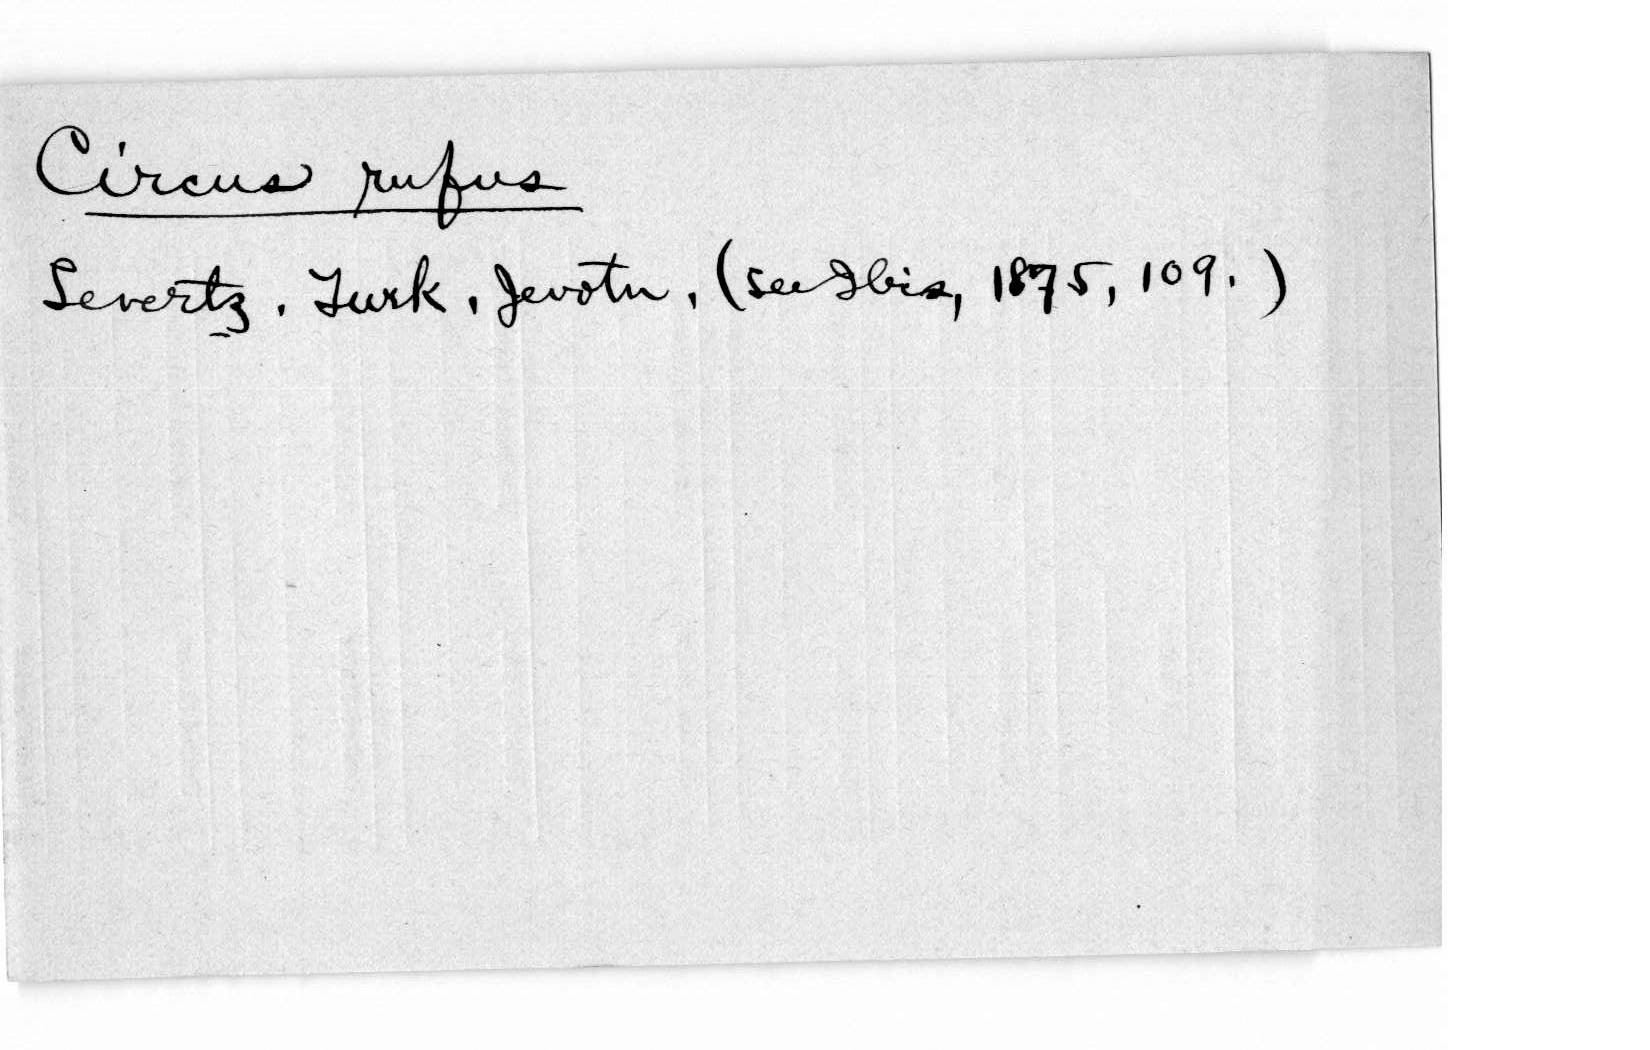 Circus rufus
Severtz. Turk. Jevotn. (see Ibis, 1875, 109.)